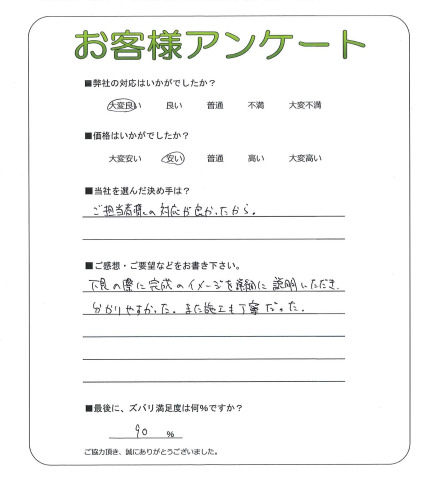 お客様アンケート
■弊社の対応はいかがでしたか？
大変良い 良い 普通 不満 大変不満
■価格はいかがでしたか？
大変安い 安い 普通 高い 大変高い
■当社を選んだ決め手は？
ご担当者様の対応が良かったから。
■ご感想・ご要望などをお書き下さい。
の際に完成のイメージを詳細に説明いただき、
分かりやすかった。また施工も丁寧だった。
■最後に、ズバリ満足度は何%ですか？
90 %
ご協力頂き、誠にありがとうございました。